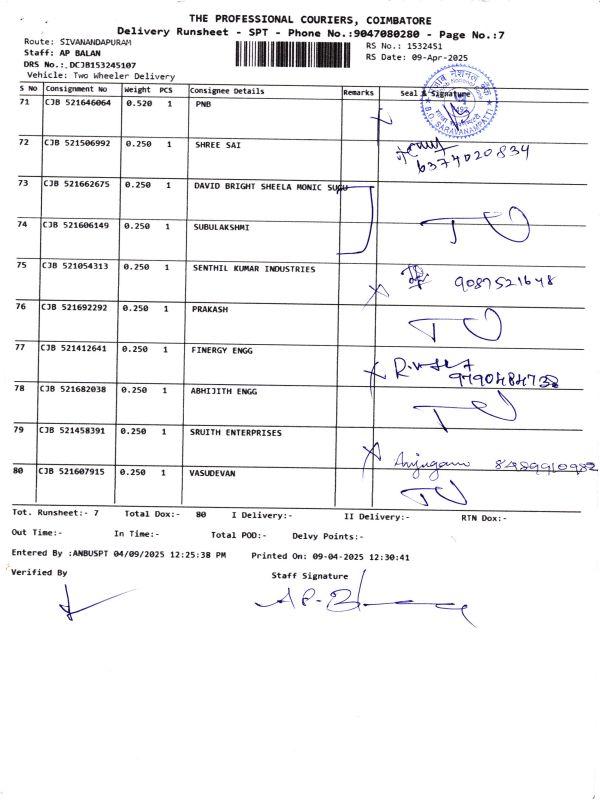 THE PROFESSIONAL COURIERS, COIMBATORE
Delivery Runsheet - SPT - Phone No.:9047080280 - Page No.:7
Route: SIVANANDAPURAM
RS No.: 1532451
Staff: AP BALAN
RS Date: 09-Apr-2025
DRS No.:.DCJB153245107
Vehicle: Two Wheeler Delivery
S No Consignment No Weight PCS Consignee Details Remarks Seal & Signature
71 CJB 521646064 0.520 1 PNB
B.O. SARAVANAMPATTI
72 CJB 521506992 0.250 1 SHREE SAI
6374020834
73 CJB 521662675 0.250 1 DAVID BRIGHT SHEELA MONIC SUGU
74 CJB 521606149 0.250 1 SUBULAKSHMI
75 CJB 521054313 0.250 1 SENTHIL KUMAR INDUSTRIES
9087521648
76 CJB 521692292 0.250 1 PRAKASH
77 CJB 521412641 0.250 1 FINERGY ENGG
78 CJB 521682038 0.250 1 ABHIJITH ENGG
79 CJB 521458391 0.250 1 SRUITH ENTERPRISES
8489910982
80 CJB 521607915 0.250 1 VASUDEVAN
Tot. Runsheet:- 7 Total Dox:- 80 I Delivery:- II Delivery:- RTN Dox:-
Out Time:- In Time:- Total POD:- Delvy Points:-
Entered By :ANBUSPT 04/09/2025 12:25:38 PM Printed On: 09-04-2025 12:30:41
Verified By Staff Signature